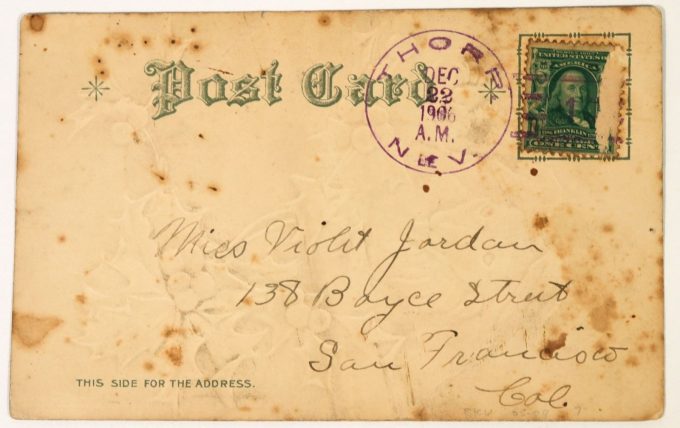 Post Card
THORP
DEC
22
1906
A.M.
NEV.
UNITED STATES OF
AMERICA
FRANKLIN
ONE CENT
Miss Violet Jordan
138 Boyce Street
San Francisco
Cal.
THIS SIDE FOR THE ADDRESS.